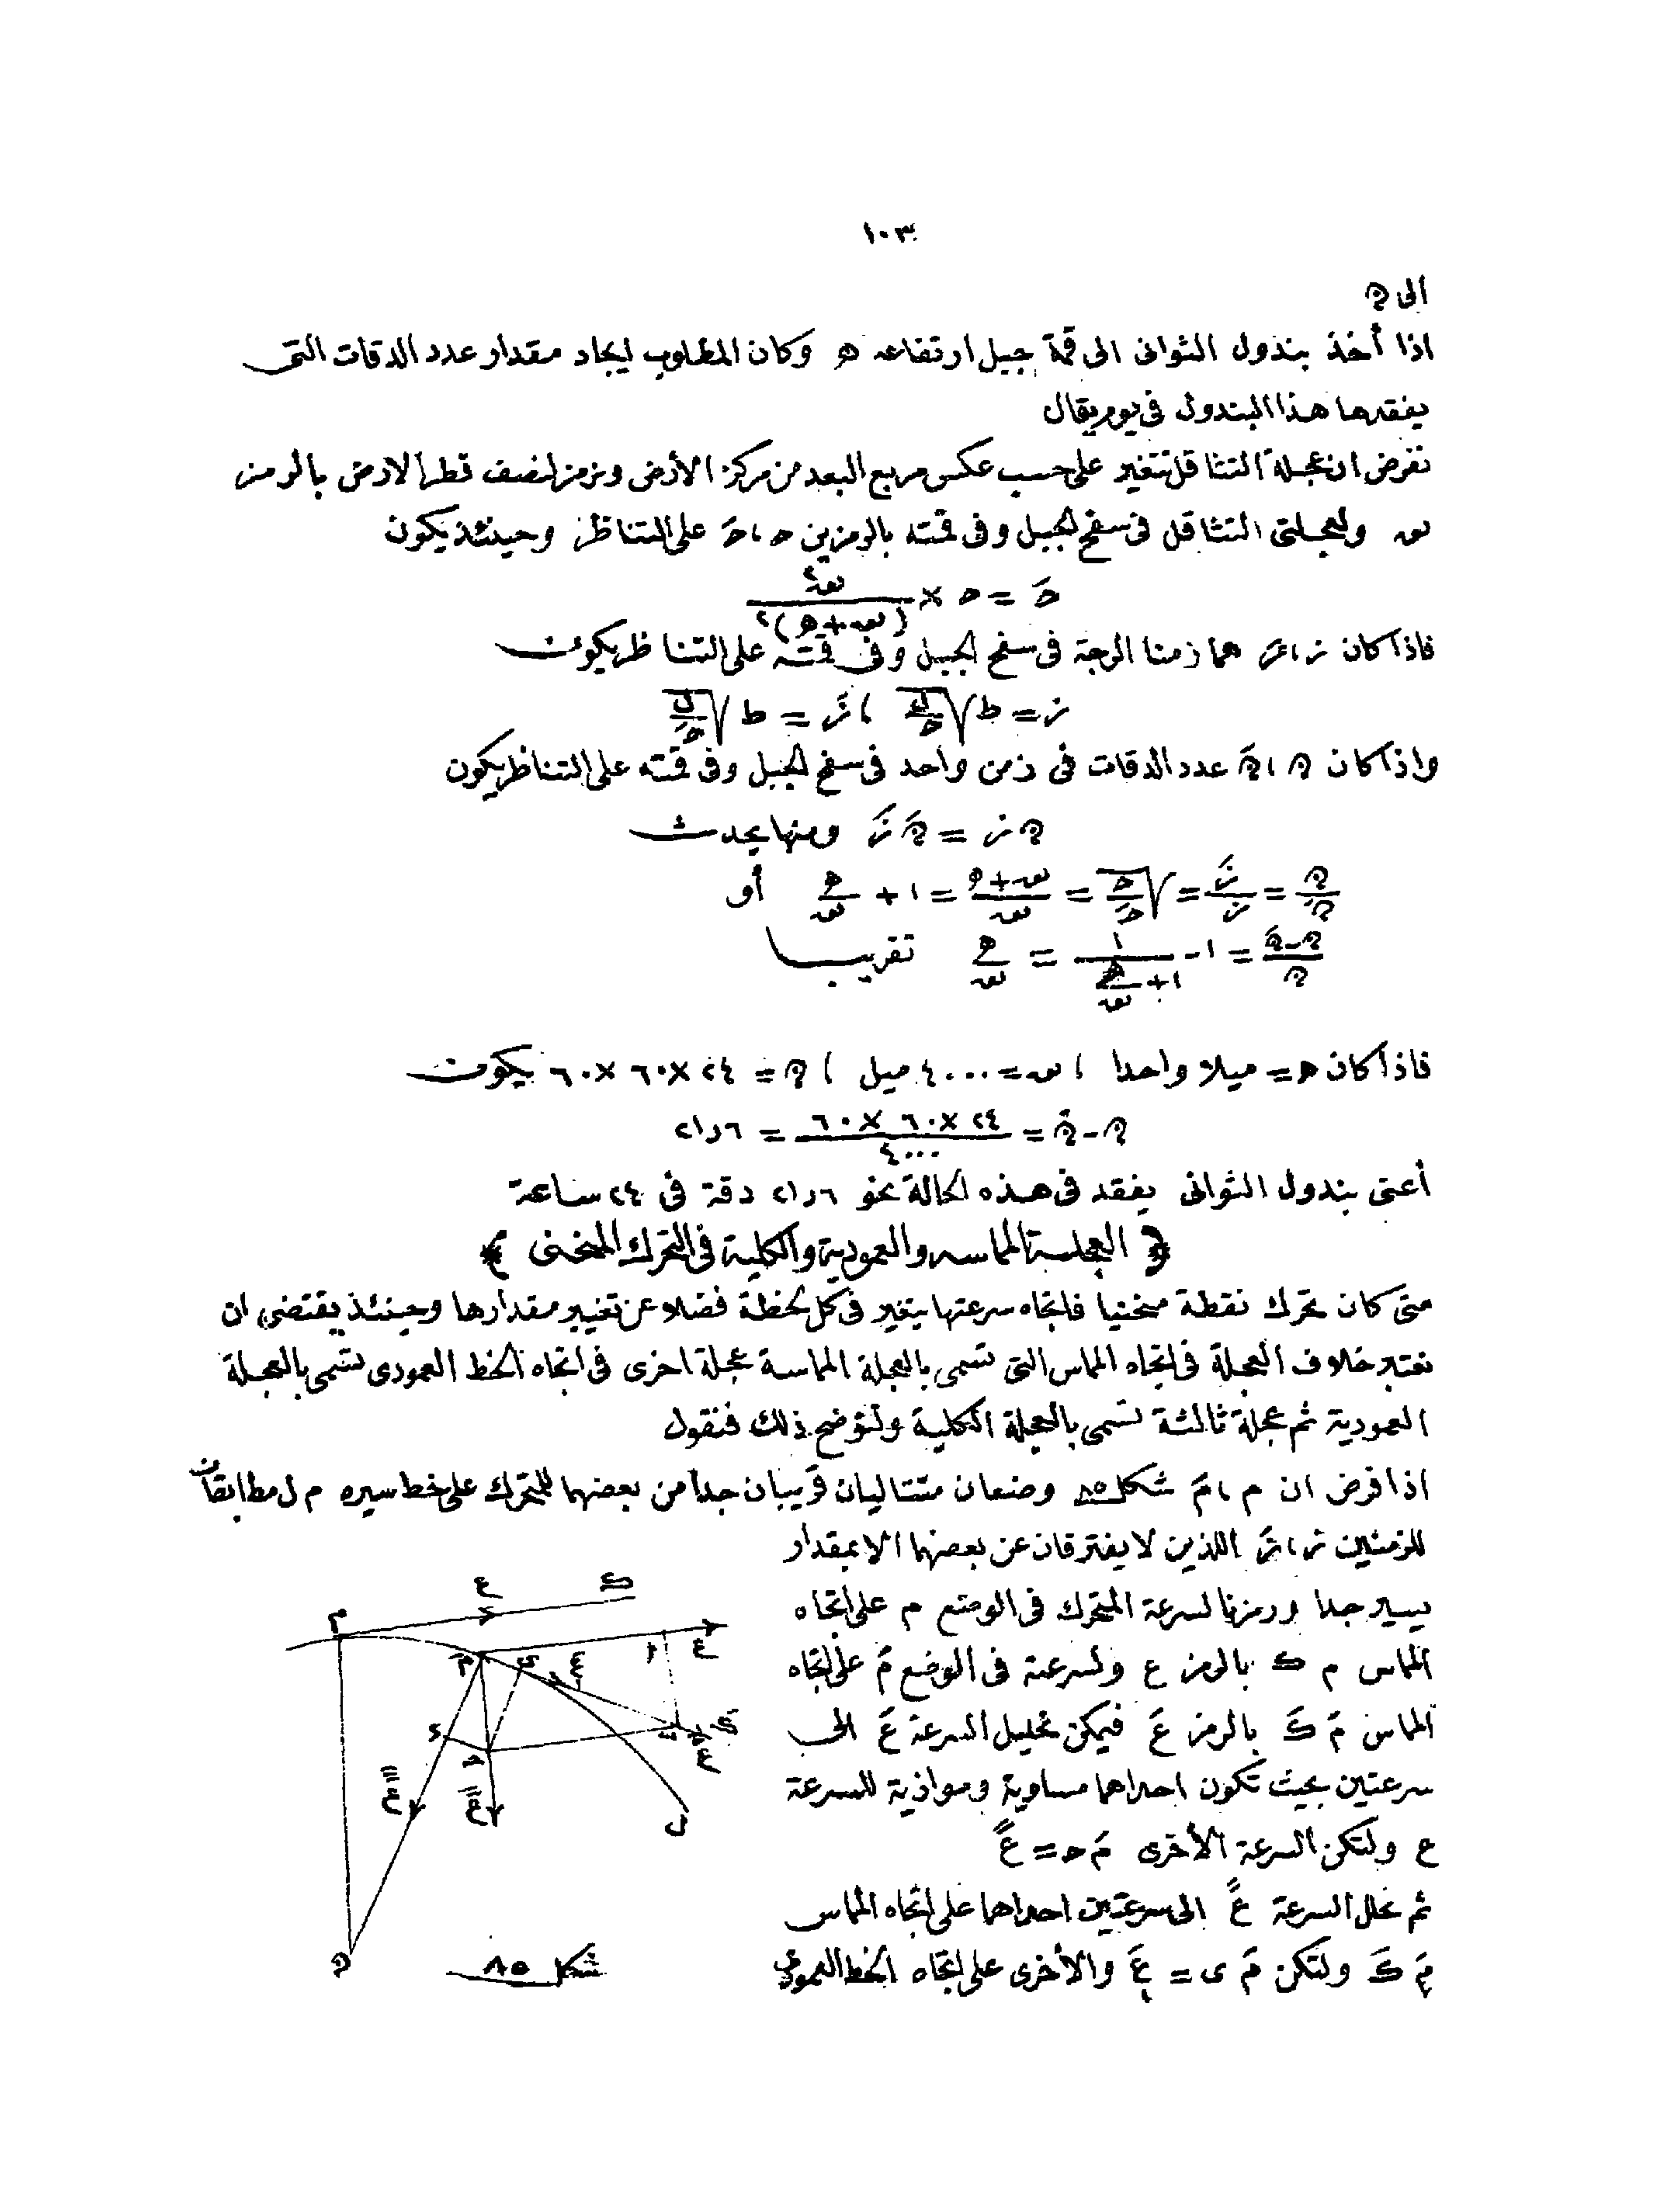 ١٠٣
الى ن
اذا أخذ بندول الثوانى الى قمة جبل ارتفاعه ھ وكان المطلوب ايجاد مقدار عدد الدقات التى
يفقدها هذا البندول فى يوم يقال
نفرض ان عجلة التثاقل تتغير على حسب عكس مربع البعد من مركز الأرض ونرمز لنصف قطر الارض بالرمز
س ولعجلتى التثاقل فى سفح الجبل وفى قمته بالرمزين ح ، حَ على التناظر وحينئذ يكون
حَ = ح × س٢ / (س + ھ)٢
فاذا كان ز ، زَ هما زمنا الرجة فى سفح الجبل وفى قمته على التناظر يكون
ز = ط √(ل/ح) ، زَ = ط √(ل/حَ)
واذا كان ن ، نَ عدد الدقات فى زمن واحد فى سفح الجبل وفى قمته على التناظر يكون
ن ز = نَ زَ ومنها يحدث
ن/نَ = زَ/ز = √(ح/حَ) = (س + ھ)/س = ١ + ھ/س أو
(ن - نَ)/ن = ١ - ١/(١ + ھ/س) = ھ/س تقريبا
فاذا كان ھ = ميلا واحدا ، س = ٤٠٠٠ ميل ، ن = ٢٤ × ٦٠ × ٦٠ يكون
ن - نَ = ٢٤ × ٦٠ × ٦٠ / ٤٠٠٠ = ٢١٫٦
أعنى بندول الثوانى يفقد فى هذه الحالة نحو ٢١٫٦ دقة فى ٢٤ ساعة
﴿ العجلة المماسه والعمودية والكلية فى التحرك المنحنى ﴾
متى كان تحرك نقطة منحنيا فاتجاه سرعتها يتغير فى كل لحظة فضلا عن تغيير مقدارها وحينئذ يقتضى ان
نعتبر خلاف العجلة فى اتجاه المماس التى تسمى بالعجلة المماسة عجلة اخرى فى اتجاه الخط العمودى تسمى بالعجلة
العمودية ثم عجلة ثالثة تسمى بالعجلة الكلية ولنوضح ذلك فنقول
اذا فرض ان م ، مَ شكل ٨٥ وضعان متتاليان قريبان جدا من بعضهما للمتحرك على خط سيره م ل مطابقان
للزمنين ز ، زَ اللذين لا يفترقان عن بعضهما الا بمقدار
يسير جدا ورمزنا لسرعة المتحرك فى الوضع م على اتجاه
المماس م ك بالرمز ع ولسرعته فى الوضع مَ على اتجاه
المماس مَ كَ بالرمز عَ فيمكن تحليل السرعة عَ الى
سرعتين بحيث تكون احداهما مساوية وموازية للسرعة
ع ولتكن السرعة الأخرى مَ ح = عً
ثم نحلل السرعة عً الى سرعتين احداهما على اتجاه المماس
مَ كَ ولتكن مَ ى = عَ والأخرى على اتجاه الخط العمودى
م
ع
ك
مَ
ى
ا
ع
ء
ح
ب
كَ
عَ
ل
ن
شكل ٨٥